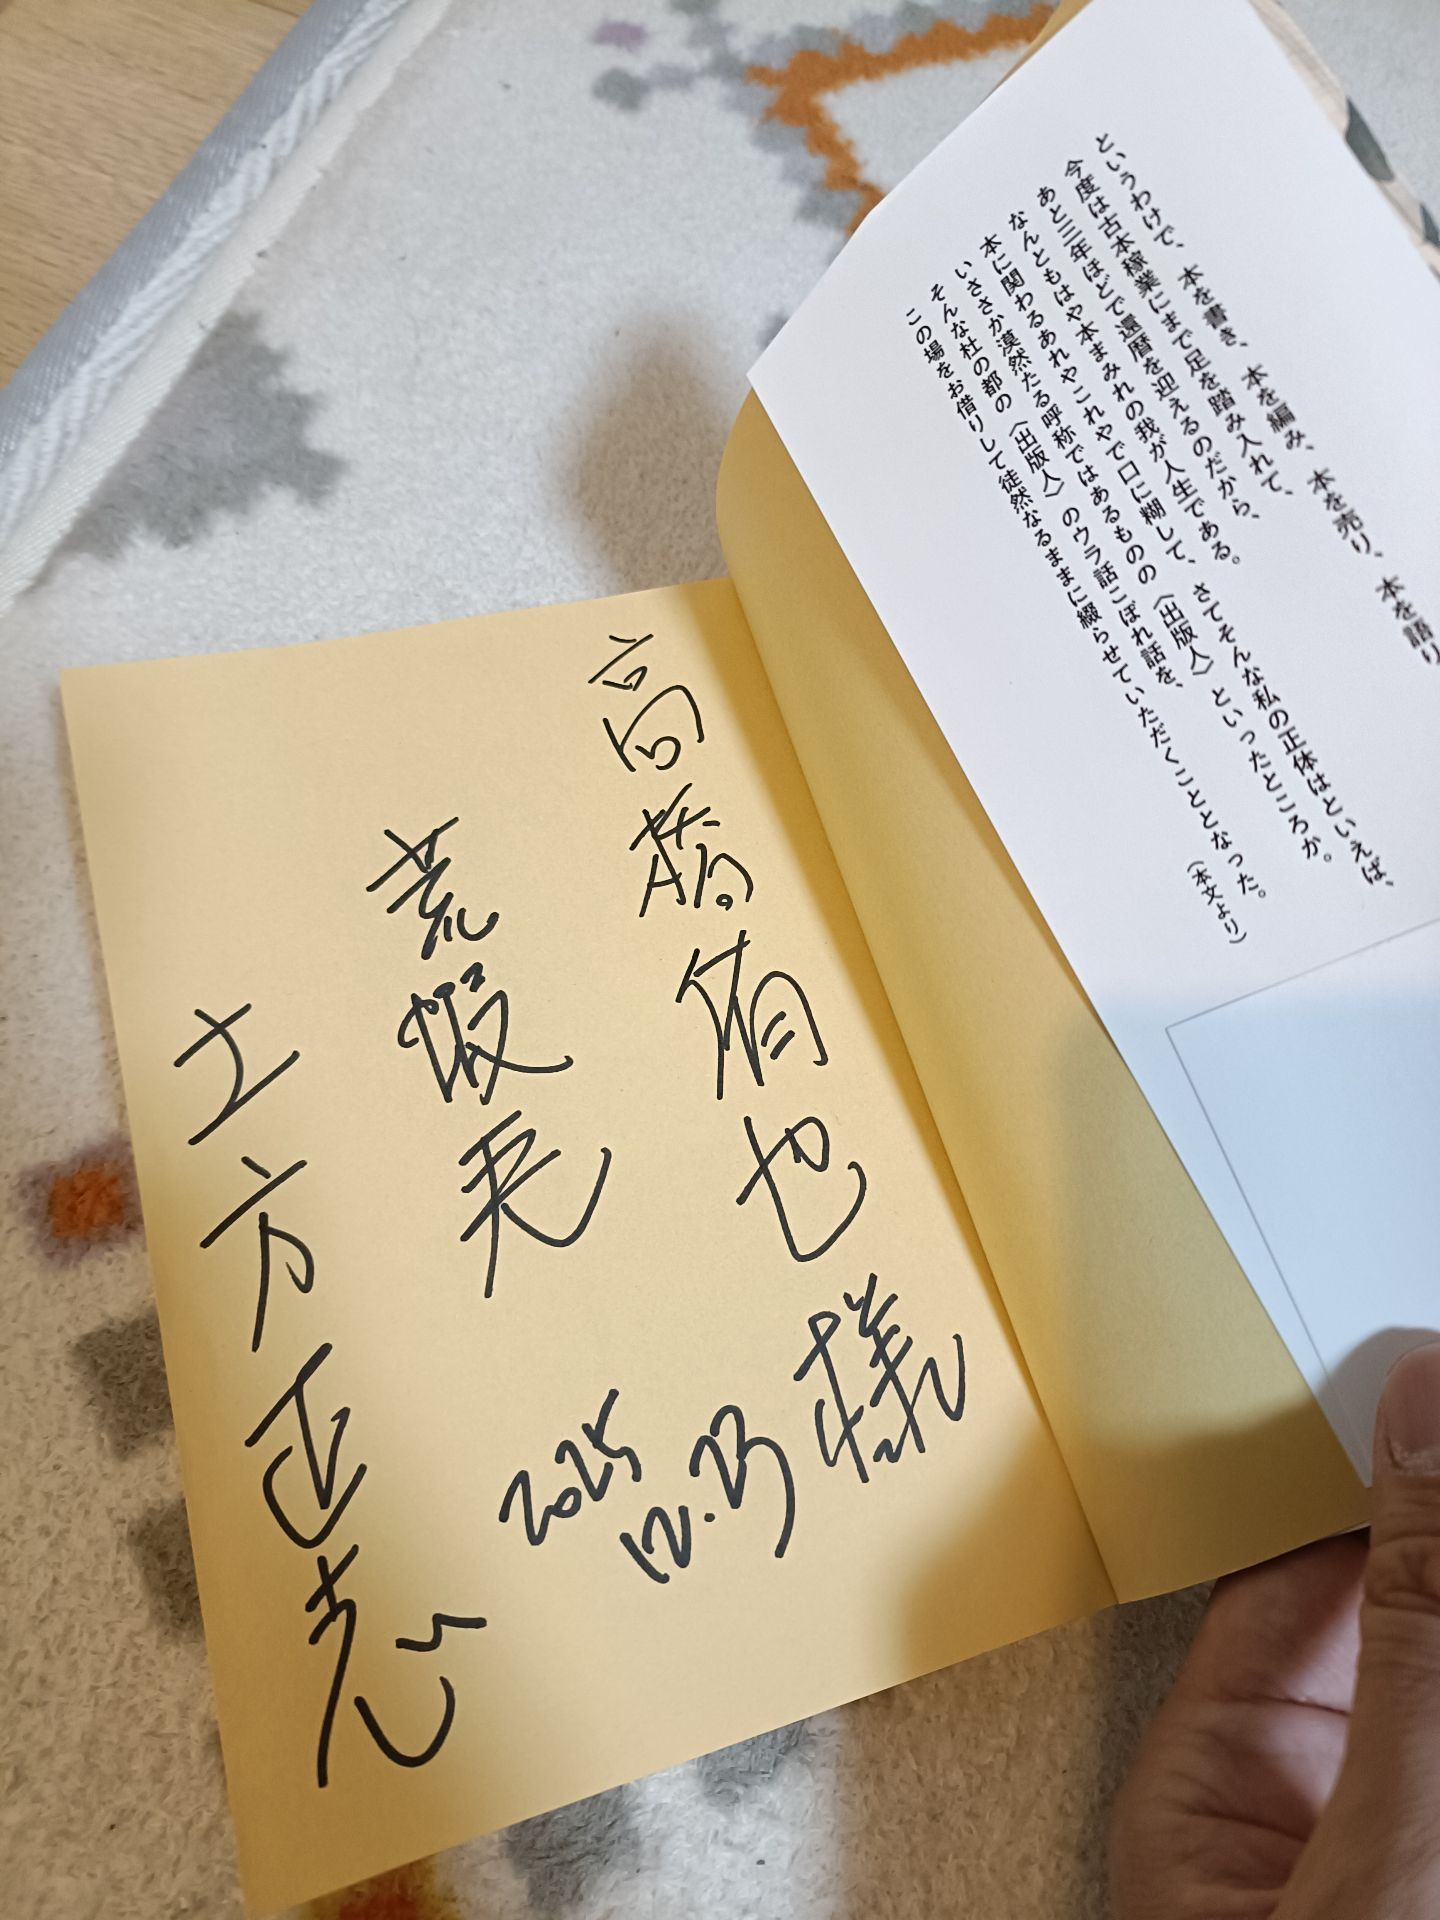 というわけで、本を書き、本を編み、本を売り、本を語り
今度は古本稼業にまで足を踏み入れて、
あと三年ほどで還暦を迎えるのだから、
なんともはや本まみれの我が人生である。さてそんな私の正体はといえば、
本に関わるあれやこれやで口に糊して、
いささか漠然たる呼称ではあるものの〈出版人〉といったところか。
そんな杜の都の〈出版人〉のウラ話こぼれ話を、
この場をお借りして徒然なるままに綴らせていただくこととなった。
(本文より)
高橋侑也様
2025
12.23
荒蝦夷
土方正志